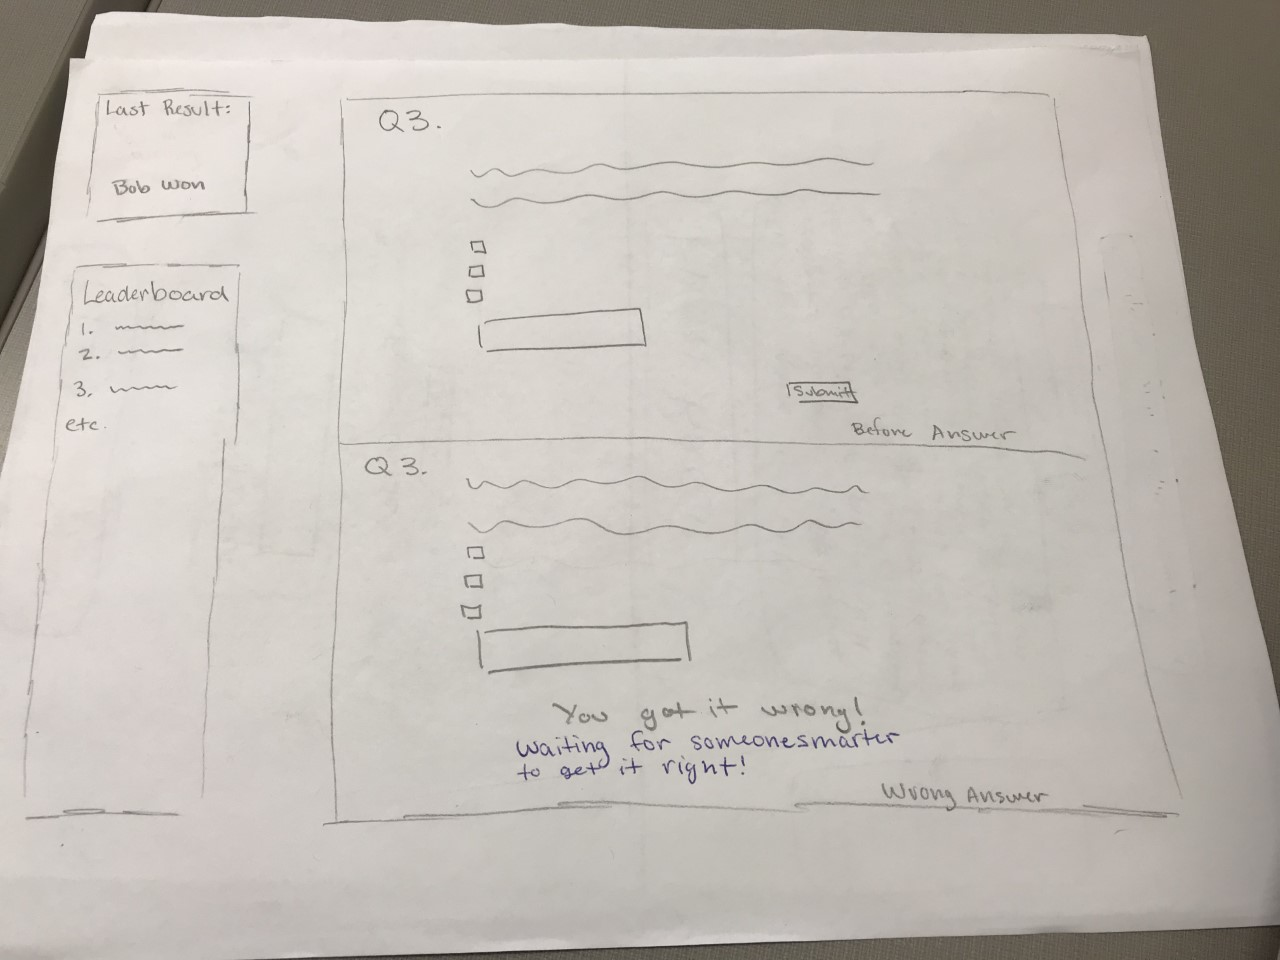 Last Result:
Bob won
Leaderboard
1.
2.
3.
etc.
Q3.
Submit
Before Answer
Q3.
You got it wrong!
waiting for someonesmarter
to get it right!
Wrong Answer